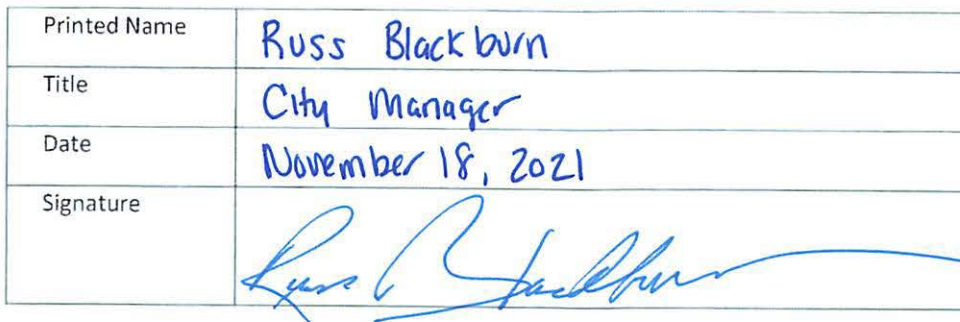 Printed Name Russ Blackburn
Title City Manager
Date November 18, 2021
Signature Russ Blackburn